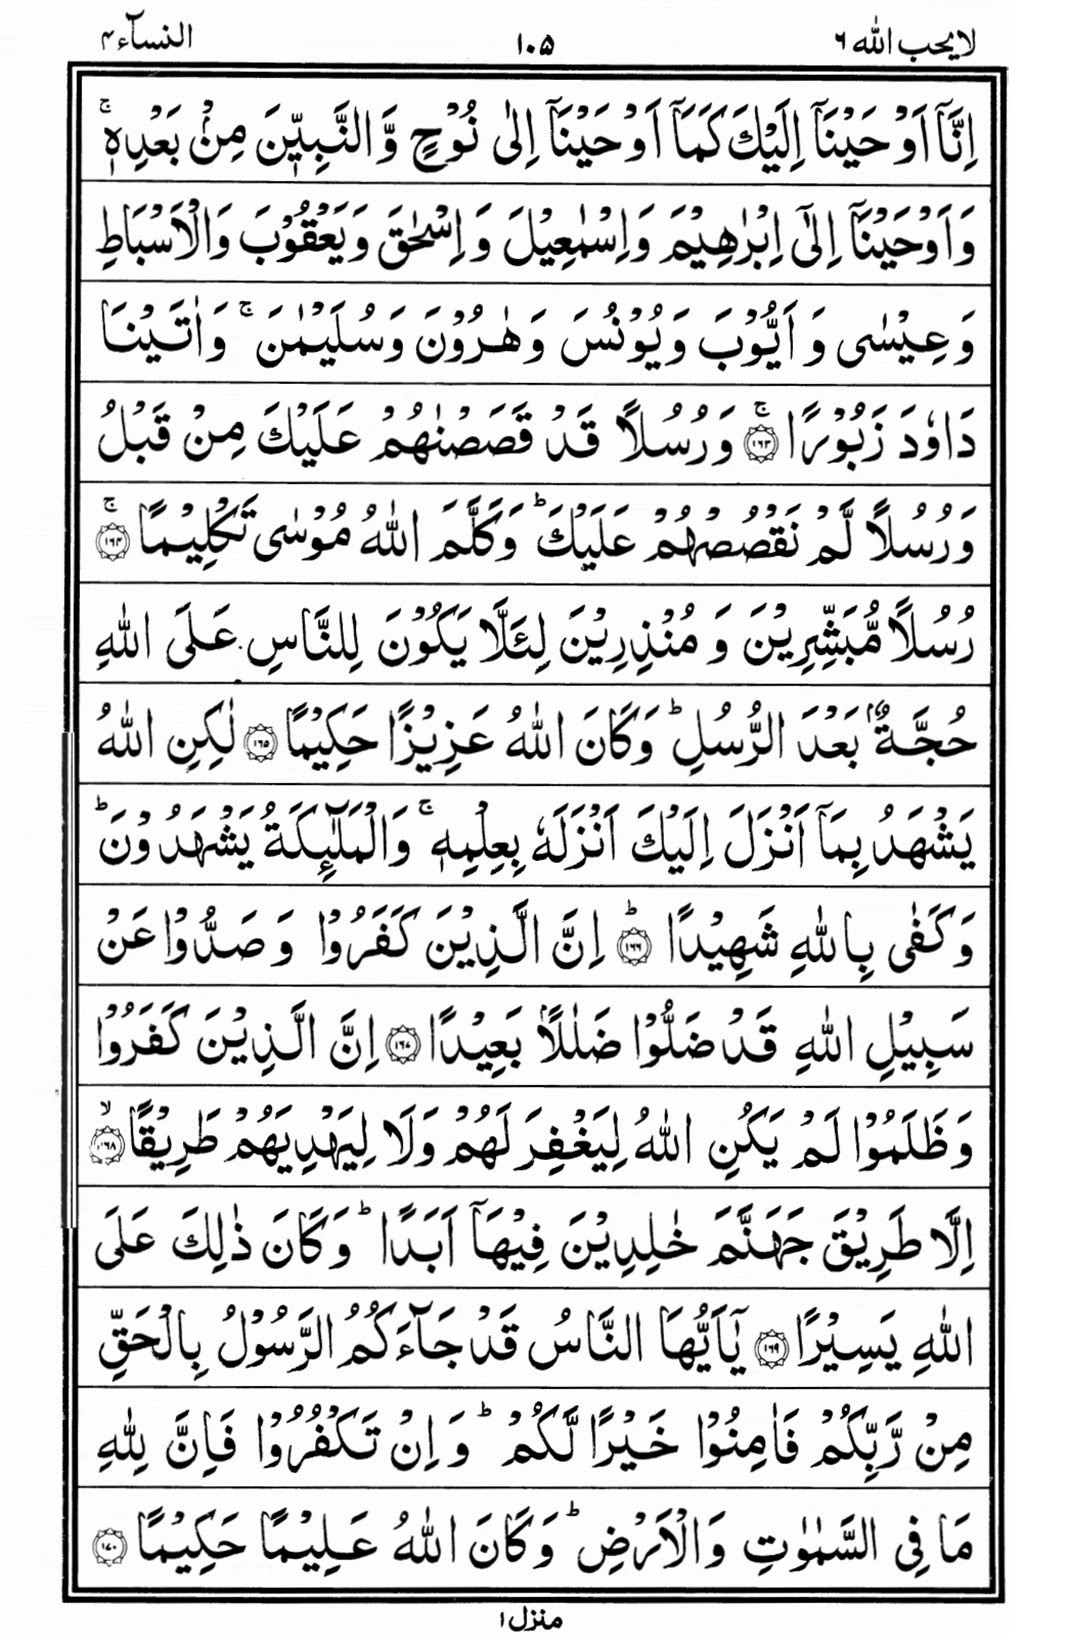 لا یحب الله ٦
١٠٥
النسآء ۴
اِنَّاۤ اَوْحَيْنَاۤ اِلَيْكَ كَمَاۤ اَوْحَيْنَاۤ اِلٰى نُوْحٍ وَّالنَّبِيّٖنَ مِنْۢ بَعْدِهٖ ۚ
وَاَوْحَيْنَاۤ اِلٰٓى اِبْرٰهِيْمَ وَاِسْمٰعِيْلَ وَاِسْحٰقَ وَيَعْقُوْبَ وَالْاَسْبَاطِ
وَعِيْسٰى وَاَيُّوْبَ وَيُوْنُسَ وَهٰرُوْنَ وَسُلَيْمٰنَ ۚ وَاٰتَيْنَا
دَاوٗدَ زَبُوْرًا ۚ ﴿١٦٣﴾ وَرُسُلًا قَدْ قَصَصْنٰهُمْ عَلَيْكَ مِنْ قَبْلُ
وَرُسُلًا لَّمْ نَقْصُصْهُمْ عَلَيْكَ ؕ وَكَلَّمَ اللّٰهُ مُوْسٰى تَكْلِيْمًا ۚ ﴿١٦۴﴾
رُسُلًا مُّبَشِّرِيْنَ وَمُنْذِرِيْنَ لِئَلَّا يَكُوْنَ لِلنَّاسِ عَلَى اللّٰهِ
حُجَّةٌۢ بَعْدَ الرُّسُلِ ؕ وَكَانَ اللّٰهُ عَزِيْزًا حَكِيْمًا ﴿١٦۵﴾ لٰكِنِ اللّٰهُ
يَشْهَدُ بِمَاۤ اَنْزَلَ اِلَيْكَ اَنْزَلَهٗ بِعِلْمِهٖ ۚ وَالْمَلٰٓئِكَةُ يَشْهَدُوْنَ ؕ
وَكَفٰى بِاللّٰهِ شَهِيْدًا ؕ ﴿١٦٦﴾ اِنَّ الَّذِيْنَ كَفَرُوْا وَصَدُّوْا عَنْ
سَبِيْلِ اللّٰهِ قَدْ ضَلُّوْا ضَلٰلًاۢ بَعِيْدًا ﴿١٦٧﴾ اِنَّ الَّذِيْنَ كَفَرُوْا
وَظَلَمُوْا لَمْ يَكُنِ اللّٰهُ لِيَغْفِرَ لَهُمْ وَلَا لِيَهْدِيَهُمْ طَرِيْقًا ۙ ﴿١٦٨﴾
اِلَّا طَرِيْقَ جَهَنَّمَ خٰلِدِيْنَ فِيْهَاۤ اَبَدًا ؕ وَكَانَ ذٰلِكَ عَلَى
اللّٰهِ يَسِيْرًا ﴿١٦٩﴾ يٰۤاَيُّهَا النَّاسُ قَدْ جَآءَكُمُ الرَّسُوْلُ بِالْحَقِّ
مِنْ رَّبِّكُمْ فَاٰمِنُوْا خَيْرًا لَّكُمْ ؕ وَاِنْ تَكْفُرُوْا فَاِنَّ لِلّٰهِ
مَا فِى السَّمٰوٰتِ وَالْاَرْضِ ؕ وَكَانَ اللّٰهُ عَلِيْمًا حَكِيْمًا ﴿١٧٠﴾
منزل ١